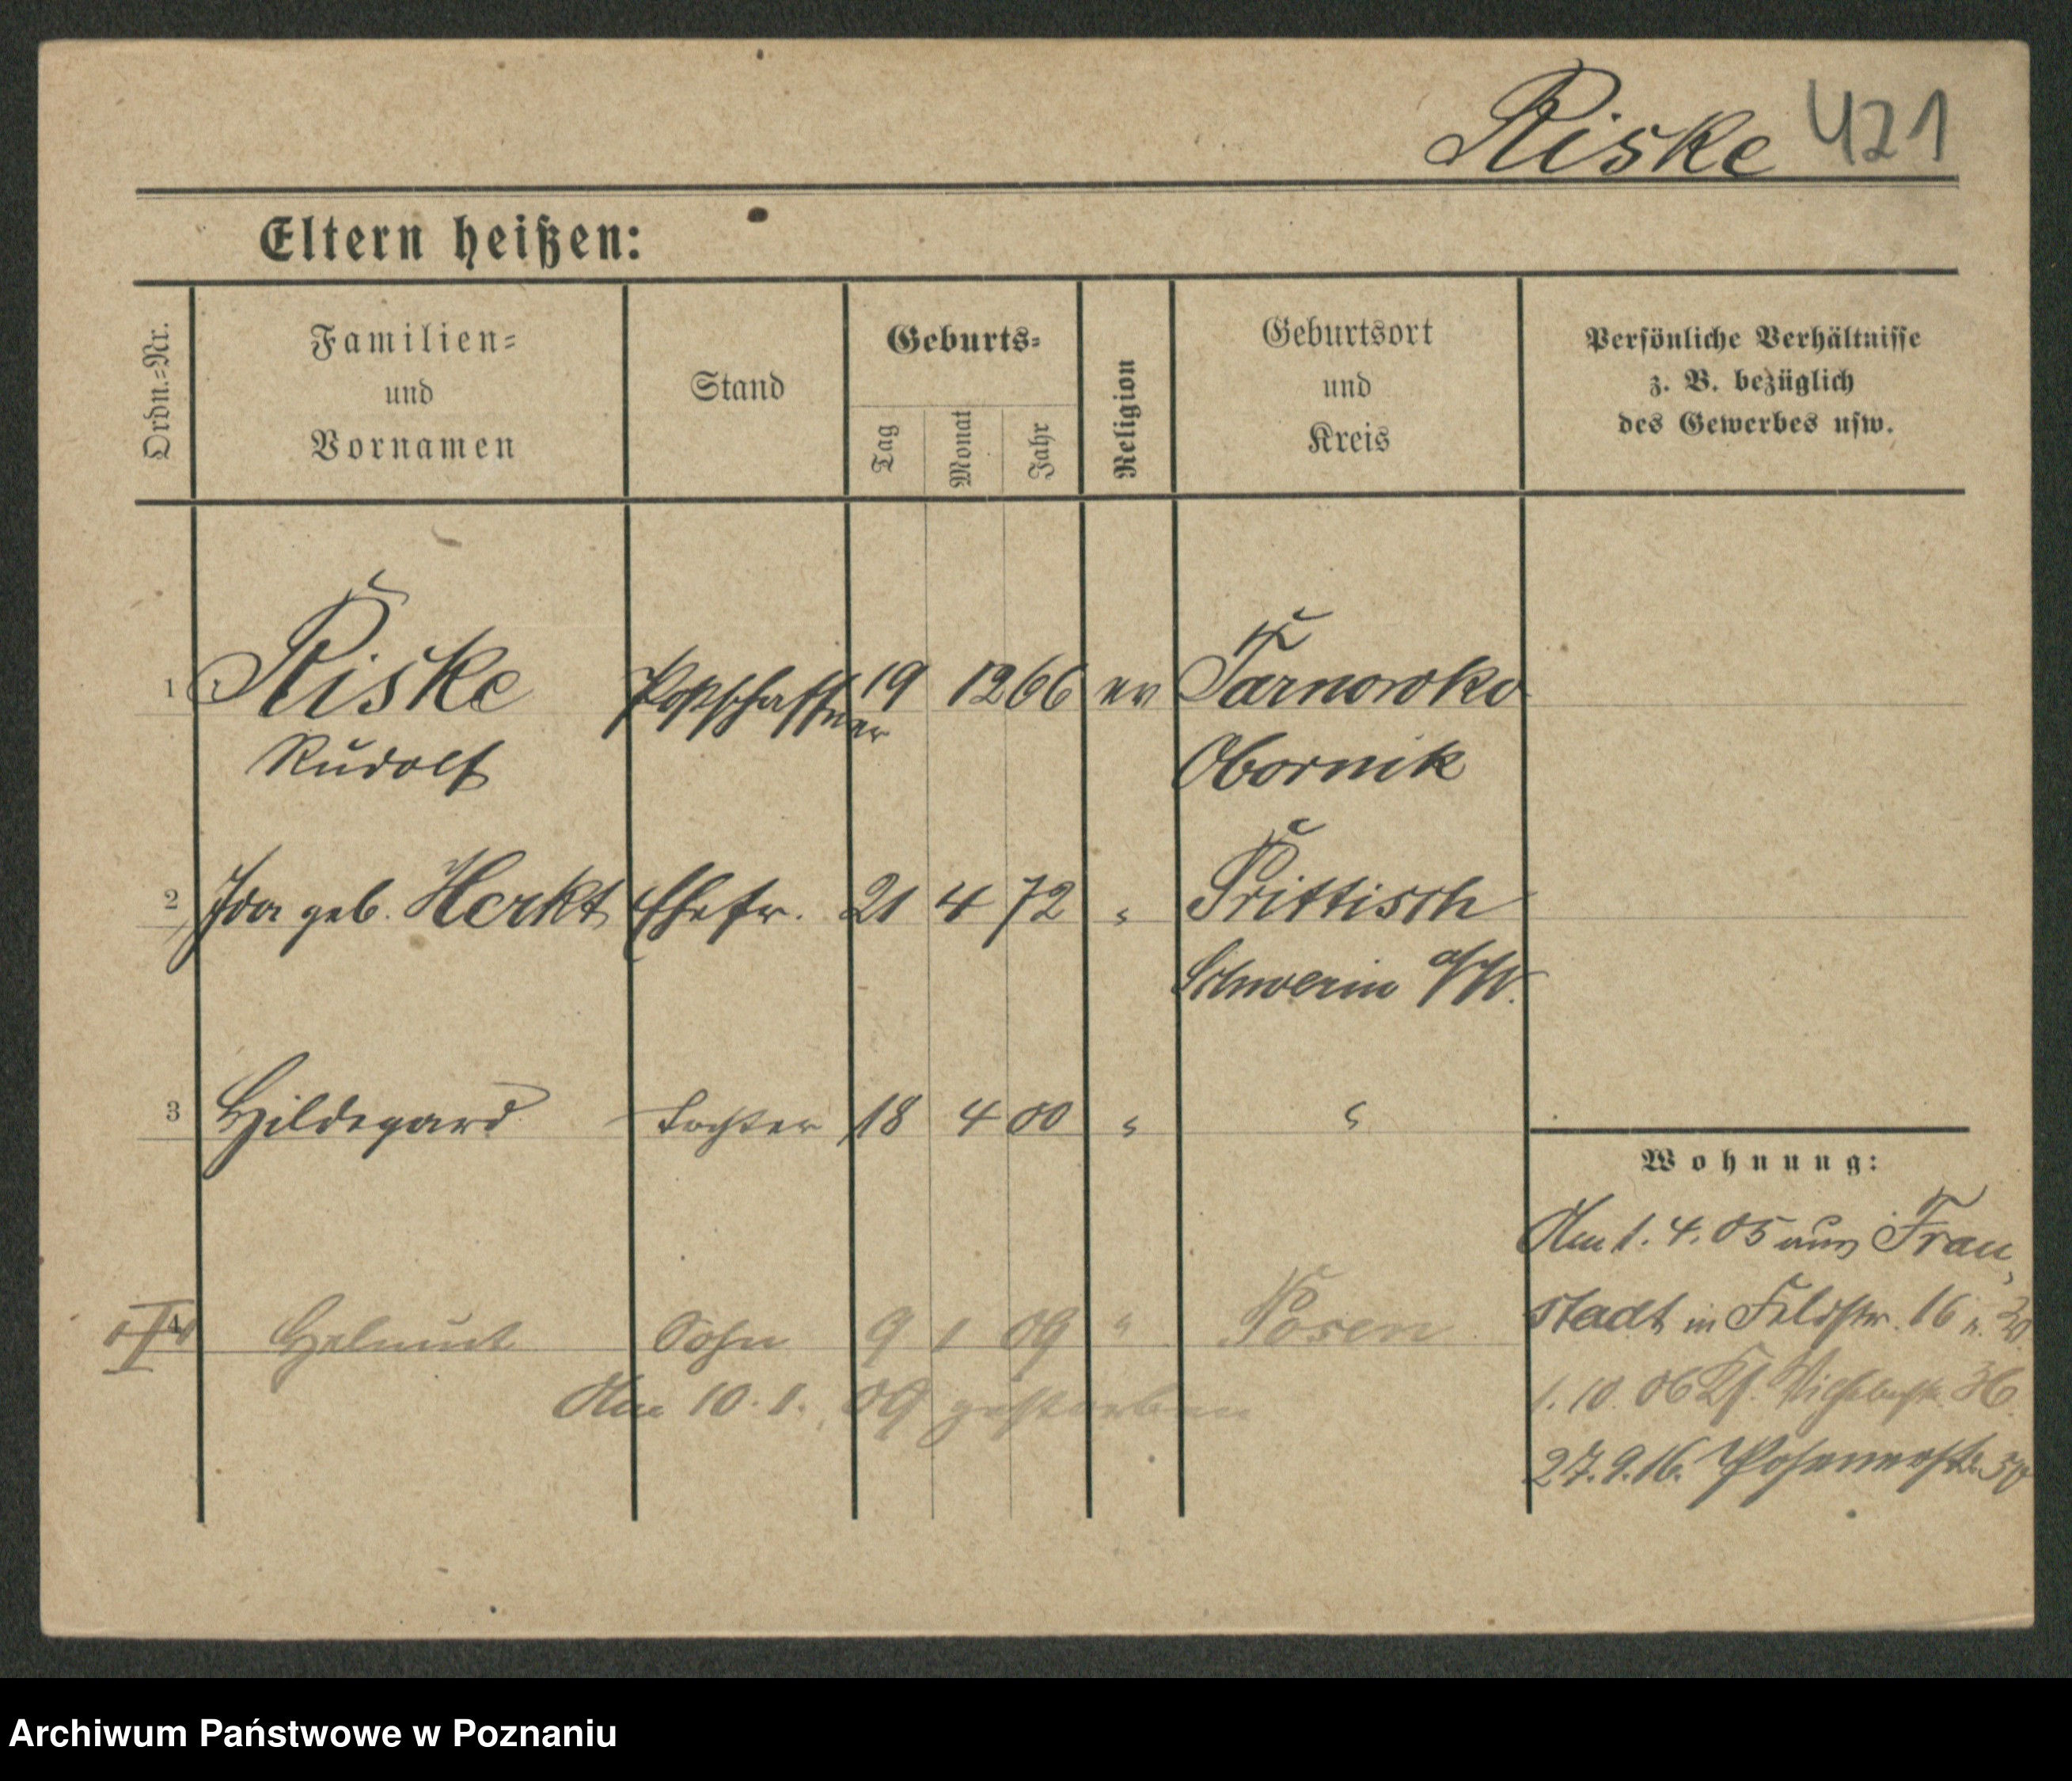 Riske 421
Eltern heißen:
Ordn.=Nr.
Familien=
und
Vornamen
Stand
Geburts=
Tag
Monat
Jahr
Religion
Geburtsort
und
Kreis
Persönliche Verhältnisse
z. B. bezüglich
des Gewerbes usw.
1 Riske Postschaffner 19 12 66 ev Tarnowko
Rudolf Obornik
2 Ida geb. Herkt Ehefr. 21 4 72 " Prittisch
Schwerin a/W.
3 Hildegard Tochter 18 4 00 " "
Wohnung:
Am 1.4.05 aus Frau,
stadt in Feldstr. 16 n.
4 Helmut Sohn 9 1 09 " Posen
Am 10.1.09 gestorben
1.10.06 36
27.9.16. Posenerstr.
Archiwum Państwowe w Poznaniu